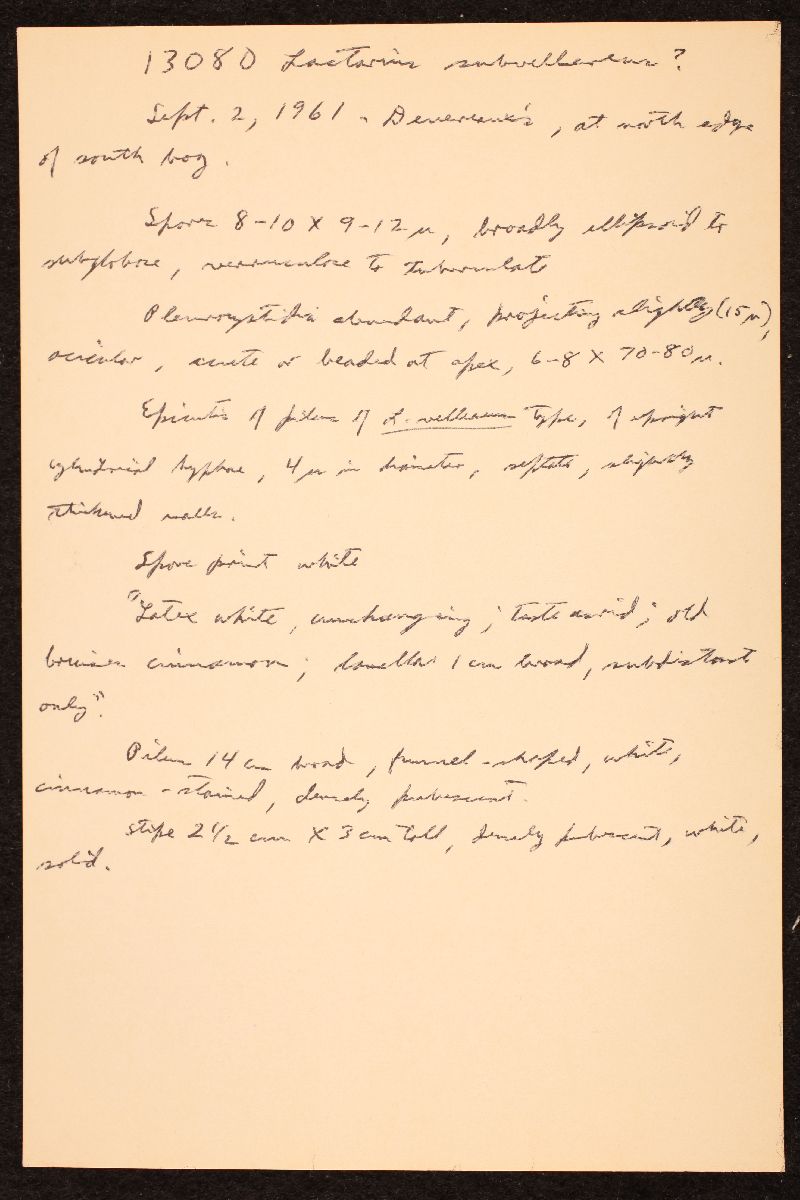 13080 Lactarius subvellereus?
Sept. 2, 1961 - Devereaux's, at north edge
of south bog.
Spores 8-10 X 9-12 μ, broadly ellipsoid to
subglobose, verruculose to tuberculate
Pleurocystidia abundant, projecting slightly (15 μ),
acicular, acute or beaded at apex, 6-8 X 70-80 μ.
Epicutis of pileus of L. vellereus type, of upright
cylindrical hyphae, 4 μ in diameter, septate, slightly
thickened walls.
Spore print white
"Latex white, unchanging; taste acrid; old
bruises cinnamon; lamellae 1 cm broad, subdistant
only".
Pileus 14 cm broad, funnel-shaped, white,
cinnamon-stained, densely pubescent.
Stipe 2 1/2 cm X 3 cm tall, densely pubescent, white,
solid.